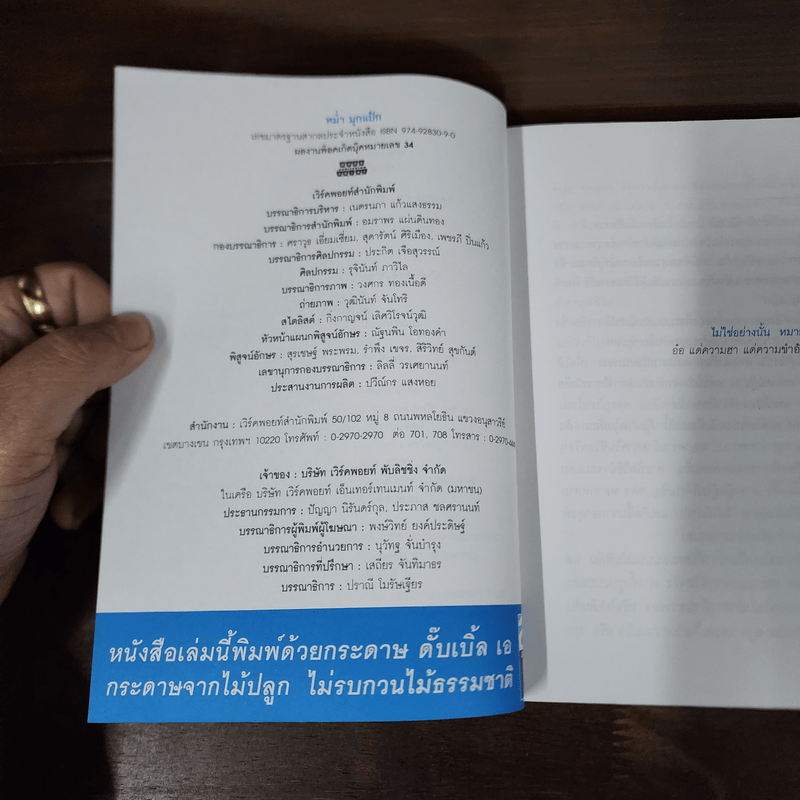 หม่ำ มุกแป้ก
เลขมาตรฐานสากลประจำหนังสือ ISBN 974-92830-9-0
ผลงานพ็อคเก็ตบุ๊คหมายเลข 34
เวิร์คพอยท์สำนักพิมพ์
บรรณาธิการบริหาร : เนตรนภา แก้วแสงธรรม
บรรณาธิการสำนักพิมพ์ : อมราพร แผ่นดินทอง
กองบรรณาธิการ : ศราวุธ เอี่ยมเซี่ยม, สุดารัตน์ ศิริเมือง, เพชรภี ปิ่นแก้ว
บรรณาธิการศิลปกรรม : ประกิต เจือสุวรรณ์
ศิลปกรรม : รุจินันท์ ภาวิไล
บรรณาธิการภาพ : วงศกร ทองเนื้อดี
ถ่ายภาพ : วุฒินันท์ จันโทริ
สไตลิสต์ : กิ่งกาญจน์ เลิศวิโรจน์วุฒิ
หัวหน้าแผนกพิสูจน์อักษร : ณัฐนพิน โอทองคำ
พิสูจน์อักษร : สุรเชษฐ์ พระพรม, รำพึง เขจร, สิริวิทย์ สุขกันต์
เลขานุการกองบรรณาธิการ : ลิลลี่ วรเศยานนท์
ประสานงานการผลิต : ปวีณ์กร แสงหอย
สำนักงาน : เวิร์คพอยท์สำนักพิมพ์ 50/102 หมู่ 8 ถนนพหลโยธิน แขวงอนุสาวรีย์
เขตบางเขน กรุงเทพฯ 10220 โทรศัพท์ : 0-2970-2970 ต่อ 701, 708 โทรสาร :
เจ้าของ : บริษัท เวิร์คพอยท์ พับลิชชิ่ง จำกัด
ในเครือ บริษัท เวิร์คพอยท์ เอ็นเทอร์เทนเมนท์ จำกัด (มหาชน)
ประธานกรรมการ : ปัญญา นิรันดร์กุล, ประภาส ชลศรานนท์
บรรณาธิการผู้พิมพ์ผู้โฆษณา : พงษ์วิทย์ ยงค์ประดิษฐ์
บรรณาธิการอำนวยการ : นุวัทฐ จั่นบำรุง
บรรณาธิการที่ปรึกษา : เสถียร จันทิมาธร
บรรณาธิการ : ปราณี โมรัษเฐียร
หนังสือเล่มนี้พิมพ์ด้วยกระดาษ ดั๊บเบิ้ล เอ
กระดาษจากไม้ปลูก ไม่รบกวนไม้ธรรมชาติ
ไม่ใช่อย่างนั้น
อ๋อ แต่ความฮา แต่ความขำ